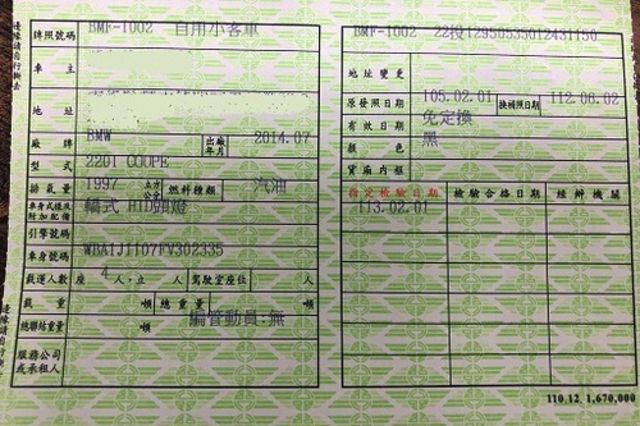 邊隙請自行撕去
牌照號碼 BMF-1002 自用小客車
車主
地址
廠牌 BMW 出廠年月 2014.07
型式 220I COUPE
排氣量 1997 立方公分 燃料種類 汽油
車身式樣及附加配備 轎式 HID頭燈
引擎號碼
車身號碼 WBA1J1107FV302335
載運人數 座 4 人,立 人 駕駛室座位 人
載重 噸 總重量 噸
總聯結重量 噸 編管動員:無
服務公司或承租人
BMF-1002 22投12950535012431150
地址變更
原發照日期 105.02.01 換補照日期 112.06.02
有效日期 免定換
顏色 黑
貨廂內框
指定檢驗日期 檢驗合格日期 經辦機關
113.02.01
110.12. 1,670,000